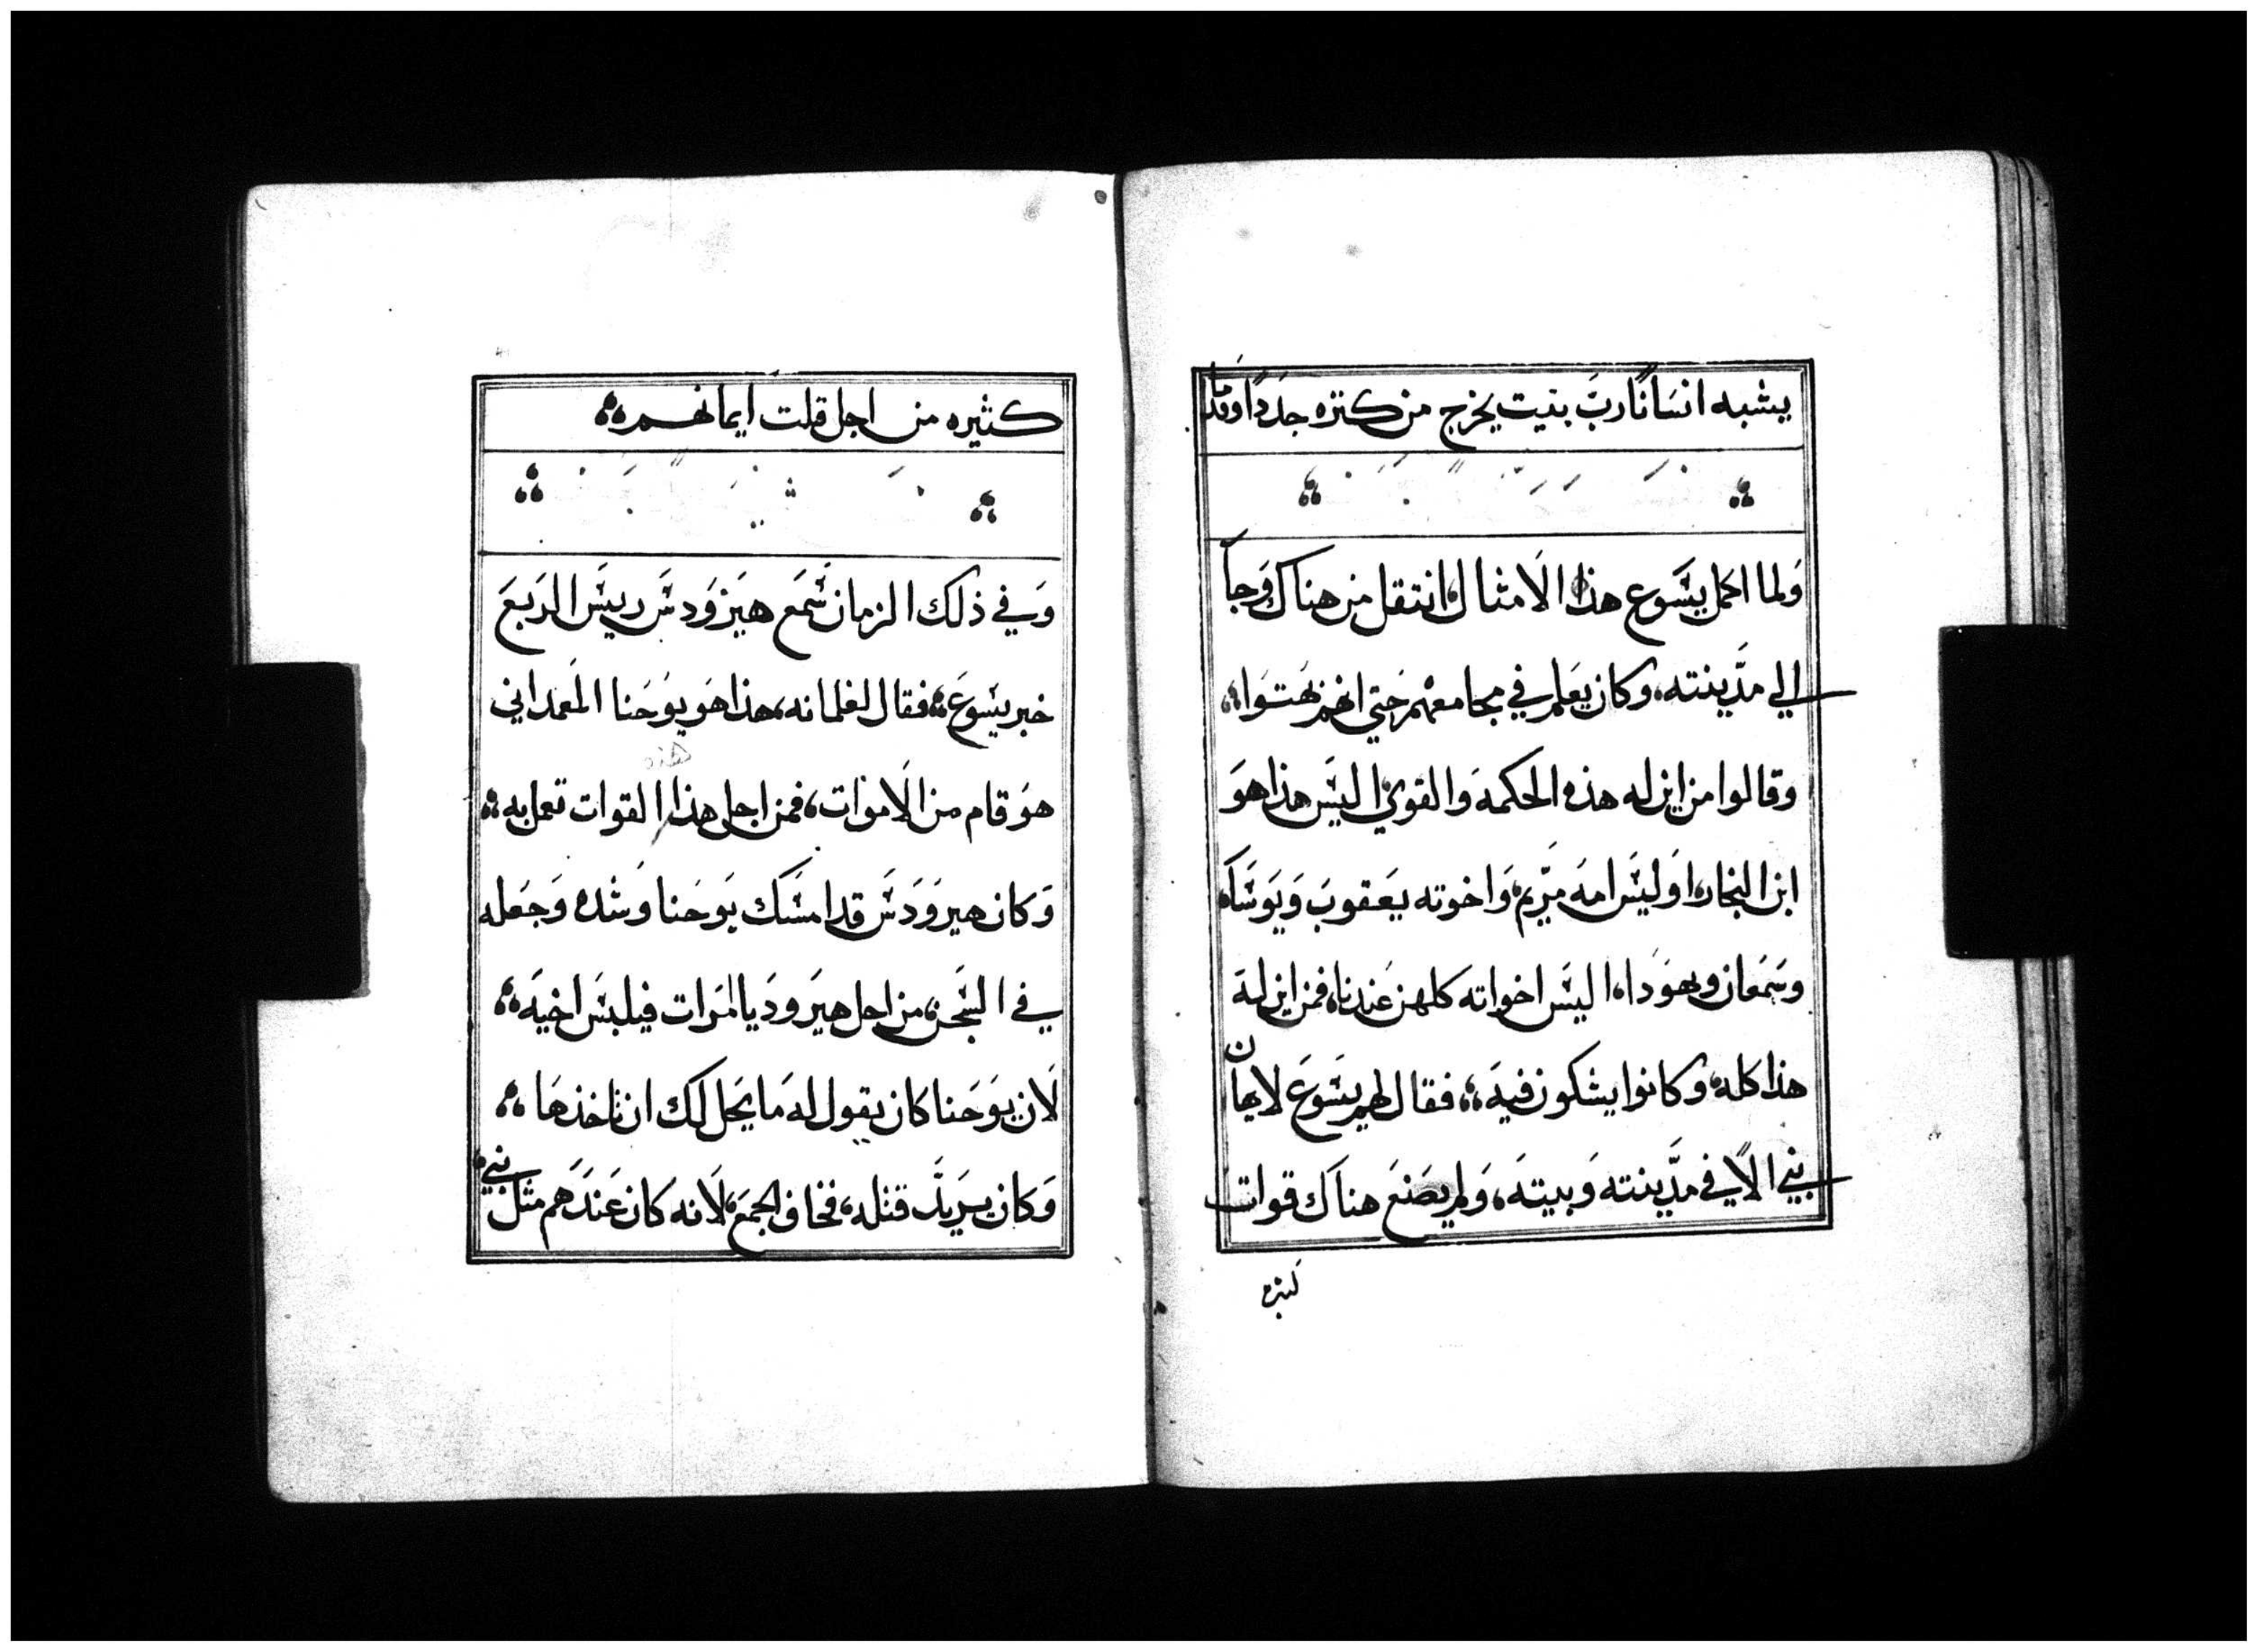 يشبه انسَانًا ربَّ بنيت يخرج من كنزه جدَدًا وقدما
وَلما اكمل يسَوع هذا الَامثال انتقل من هناك وَجاً
الي مدَّينته، وكان يعَلم في مجامعهم حَتي انهم بهتوَا
وقالوا من اين له هذه الحكمهَ وَالقوي اليسَ هذا هوَ
ابن النجار، اوَليسَ امهَ ميرَّيم، وَاخوته يعَقوبَ وَيوَسَاه
وسَمَعان ويهوَدا، اليسَ اخواته كلهن عَندنا، فمن اين لهَ
هذا كلهَ، وكانوا يشكون فيهَ، فقال لهم يسَوعَ لايهان
نبي الَّا في مدَّينته وَبيتهَ، وَلم يصَنعَ هناَك قوات
كثيره
كثيره من اجل قلت ايمانهم
وَفي ذلك الزمان سَّمَع هيَروَدسَ رييسَ الرَبعَ
خبر يسَوعَ، فقال لغلمانه، هذا هوَ يوَحَنا المَعمداني
هذه
هوَ قام من الَاموَات، فمن اجل هذا القوات تعمل به
وَكان هيروَدَسَ قد امسَك يوَحَنا وَشده وَجَعله
في السَّجن، من اجل هيَروديَا امَرات فيلبسَ اخيهَ
لَان يوَحَنا كان يقول لهَ مَا يحَل لك ان تاخذهَا
وَكان يرَيدَّ قتله، فخاف الجمعَ، لَانه كان عَندَهم مثل نبي